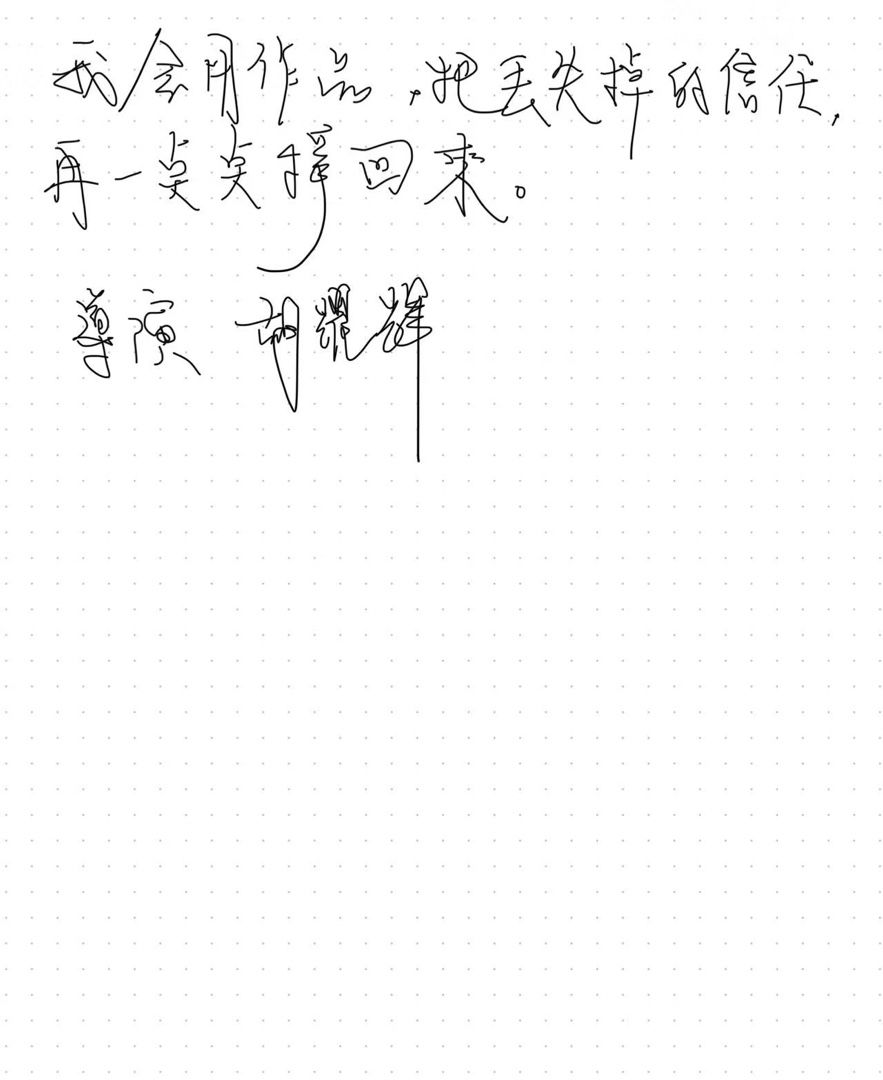 我会用作品,把丟失掉的信任,
再一点点撑回來。
導演 胡耀輝